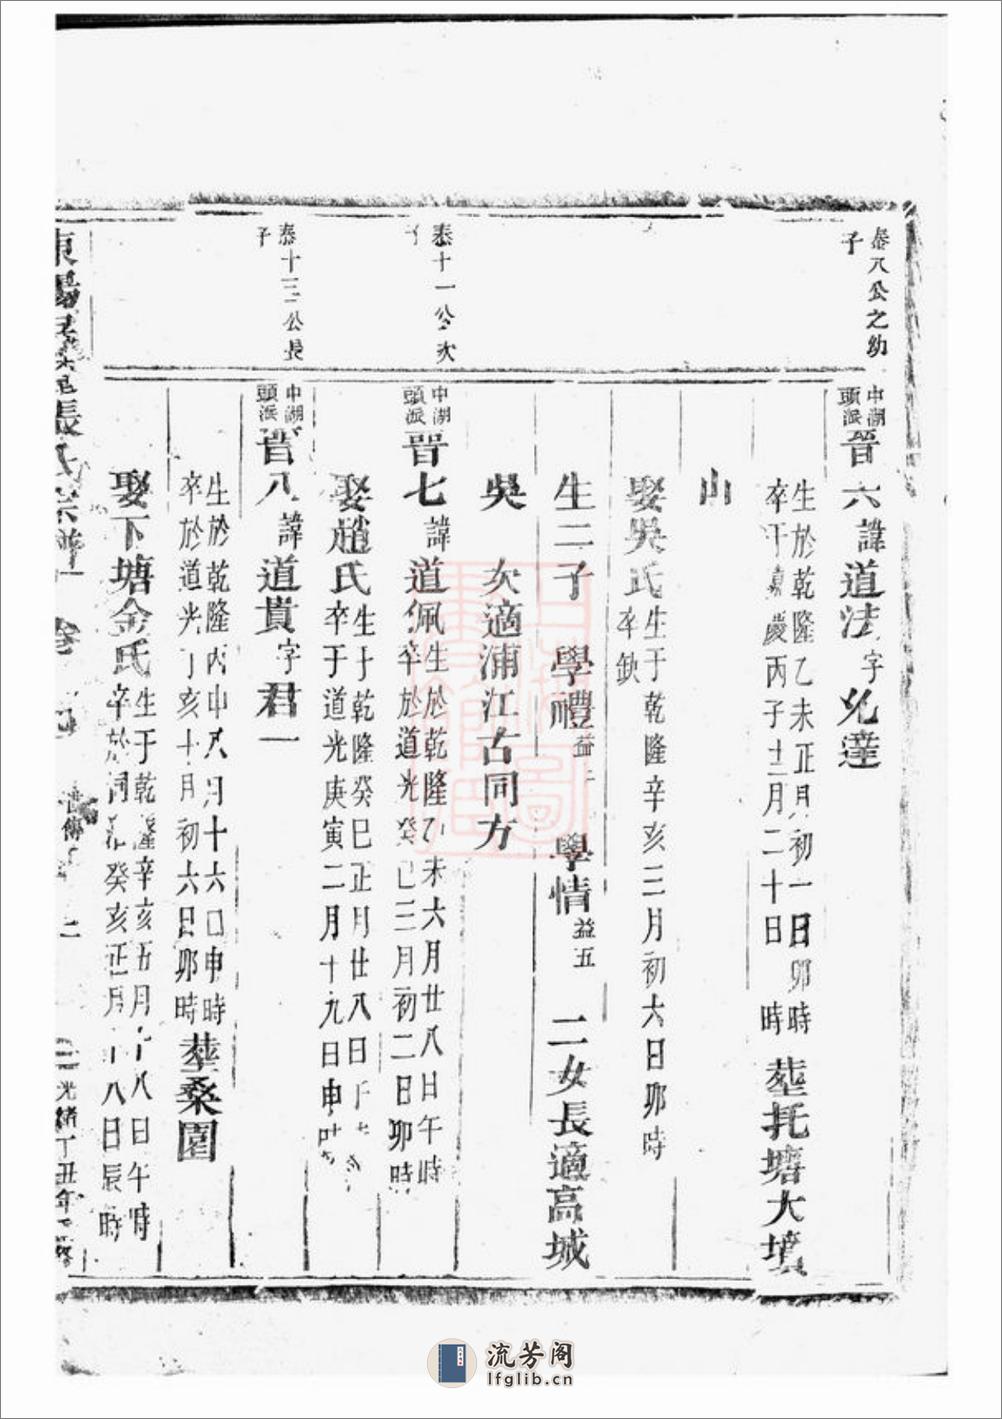 泰八公之幼
子
中湖
頭派
晉六諱道法字兆達
生於乾隆乙未正月初一日卯時
卒于嘉慶丙子十二月二十日 時
塟托塘大墳
山
娶吳氏
生于乾隆辛亥三月初六日卯時
卒缺
生二子 學禮益 學情益五 二女長適高城
吳 次適浦江古同方
泰十一公次
子
中湖
頭派
晉七諱道佩
生於乾隆乙未六月廿八日午時
卒於道光癸巳三月初二日卯時
娶趙氏
生于乾隆癸巳正月廿八日
卒于道光庚寅二月十九日申時
泰十三公長
子
中湖
頭派
晉八諱道貴字君一
生於乾隆丙申八月十六日申時
卒於道光丁亥十月初六日卯時
塟桑園
娶下塘金氏
生于乾隆辛亥五月十八日午時
卒於同治癸亥正月十八日辰時
東陽 張氏宗譜 卷 傳 二 光緒丁丑年
流芳阁
lfglib.cn